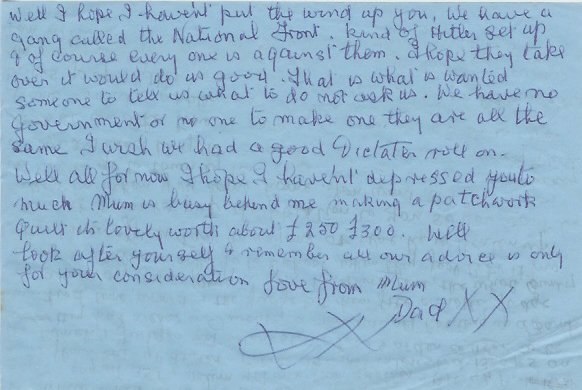 Well I hope I havent put the wind up you. We have a
gang called the National Front. kind of Hitler set up
& of course every one is against them. I hope they take
over it would do us good. That is what is wanted
someone to tell us what to do not ask us. We have no
Government or no one to make one they are all the
same I wish we had a good Dictater roll on.
Well all for now I hope I havent depressed you to
much Mum is busy behind me making a patchwork
quilt its lovely worth about £250 £300. Well
look after yourself & remember all our advice is only
for your consideration Love from Mum
Dad X X